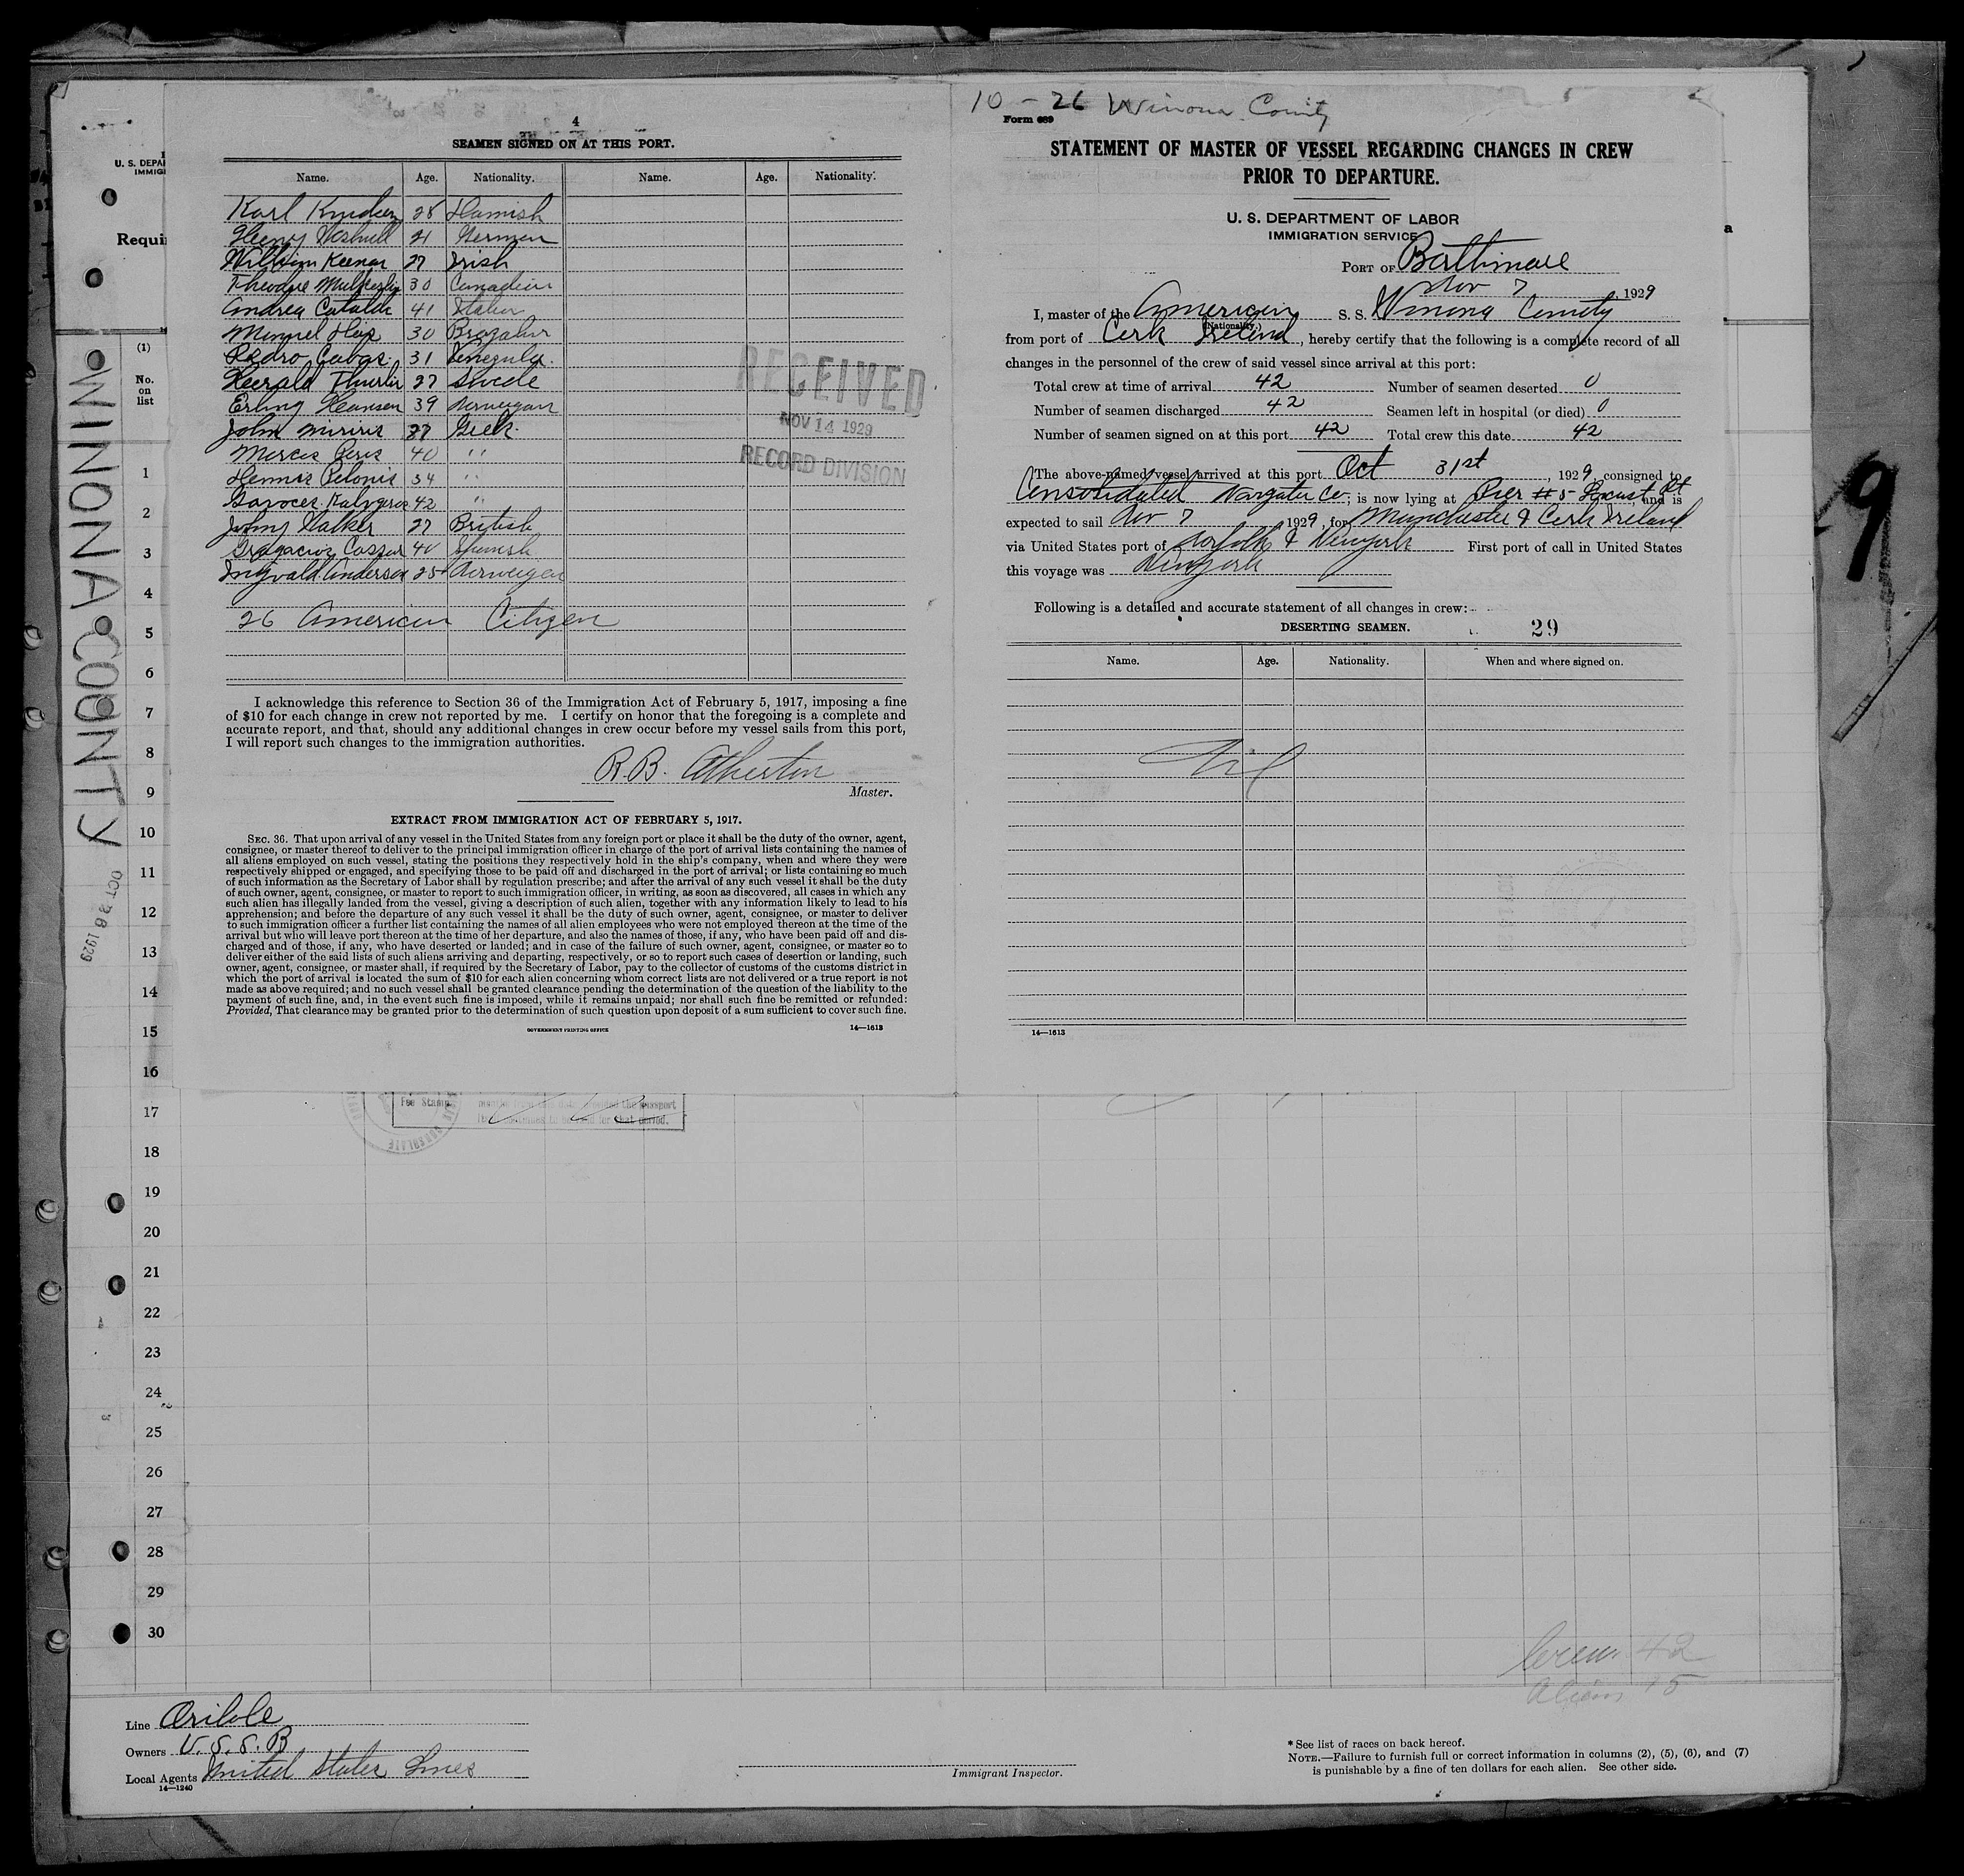 4
SEAMEN SIGNED ON AT THIS PORT.
Name. Age. Nationality. Name. Age. Nationality.
Karl 28
Henry 21 German
William Keenan 27 Irish
Theodore 30 Canadian
Andrea Cataldi 41
30
Pedro 31
27 Swede
Erling Hansen 39 Norwegian
John 37 Greek
40 " "
34 " "
42 "
Johny Walker 27 British
40 Spanish
Ingvald Anderson 25 Norwegen
26 American Citizen
RECEIVED
NOV 14 1929
RECORD DIVISION
I acknowledge this reference to Section 36 of the Immigration Act of February 5, 1917, imposing a fine
of $10 for each change in crew not reported by me. I certify on honor that the foregoing is a complete and
accurate report, and that, should any additional changes in crew occur before my vessel sails from this port,
I will report such changes to the immigration authorities.
R.B. Atherton
Master.
EXTRACT FROM IMMIGRATION ACT OF FEBRUARY 5, 1917.
SEC. 36. That upon arrival of any vessel in the United States from any foreign port or place it shall be the duty of the owner, agent,
consignee, or master thereof to deliver to the principal immigration officer in charge of the port of arrival lists containing the names of
all aliens employed on such vessel, stating the positions they respectively hold in the ship's company, when and where they were
respectively shipped or engaged, and specifying those to be paid off and discharged in the port of arrival; or lists containing so much
of such information as the Secretary of Labor shall by regulation prescribe; and after the arrival of any such vessel it shall be the duty
of such owner, agent, consignee, or master to report to such immigration officer, in writing, as soon as discovered, all cases in which any
such alien has illegally landed from the vessel, giving a description of such alien, together with any information likely to lead to his
apprehension; and before the departure of any such vessel it shall be the duty of such owner, agent, consignee, or master to deliver
to such immigration officer a further list containing the names of all alien employees who were not employed thereon at the time of the
arrival but who will leave port thereon at the time of her departure, and also the names of those, if any, who have been paid off and dis-
charged and of those, if any, who have deserted or landed; and in case of the failure of such owner, agent, consignee, or master so to
deliver either of the said lists of such aliens arriving and departing, respectively, or so to report such cases of desertion or landing, such
owner, agent, consignee, or master shall, if required by the Secretary of Labor, pay to the collector of customs of the customs district in
which the port of arrival is located the sum of $10 for each alien concerning whom correct lists are not delivered or a true report is not
made as above required; and no such vessel shall be granted clearance pending the determination of the question of the liability to the
payment of such fine, and, in the event such fine is imposed, while it remains unpaid; nor shall such fine be remitted or refunded:
Provided, That clearance may be granted prior to the determination of such question upon deposit of a sum sufficient to cover such fine.
GOVERNMENT PRINTING OFFICE 14—1613
10 - 26 Winona County
Form 689
STATEMENT OF MASTER OF VESSEL REGARDING CHANGES IN CREW
PRIOR TO DEPARTURE.
U. S. DEPARTMENT OF LABOR
IMMIGRATION SERVICE
PORT OF Balthimore
Nov 7, 1929
I, master of the American S. S. Winona County
(Nationality.)
from port of Cork Ireland, hereby certify that the following is a complete record of all
changes in the personnel of the crew of said vessel since arrival at this port:
Total crew at time of arrival 42 Number of seamen deserted 0
Number of seamen discharged 42 Seamen left in hospital (or died) 0
Number of seamen signed on at this port 42 Total crew this date 42
The above-named vessel arrived at this port Oct 31st, 1929, consigned to
Consolidated Co; is now lying at Pier # 5 Locust St and is
expected to sail Nov 7 1929, for Manchester & Cork Ireland
via United States port of Norfolk & Newyork First port of call in United States
this voyage was Newyork
Following is a detailed and accurate statement of all changes in crew:
DESERTING SEAMEN. 29
Name. Age. Nationality. When and where signed on.
Nil
14—1613
U. S. DEPA
IMMIG
Requi
a
(1)
No.
on
list
1
2
3
4
5
6
7
8
9
10
11
12
13
14
15
16
17
18
19
20
21
22
23
24
25
26
27
28
29
30
WINONA COUNTY
OCT 26 1929
9
Fee Stamp
Crew 42
Aliens 15
Line Oriole
Owners U.S.S.B
Local Agents United States Lines
14—1240
Immigrant Inspector.
* See list of races on back hereof.
NOTE.—Failure to furnish full or correct information in columns (2), (5), (6), and (7)
is punishable by a fine of ten dollars for each alien. See other side.